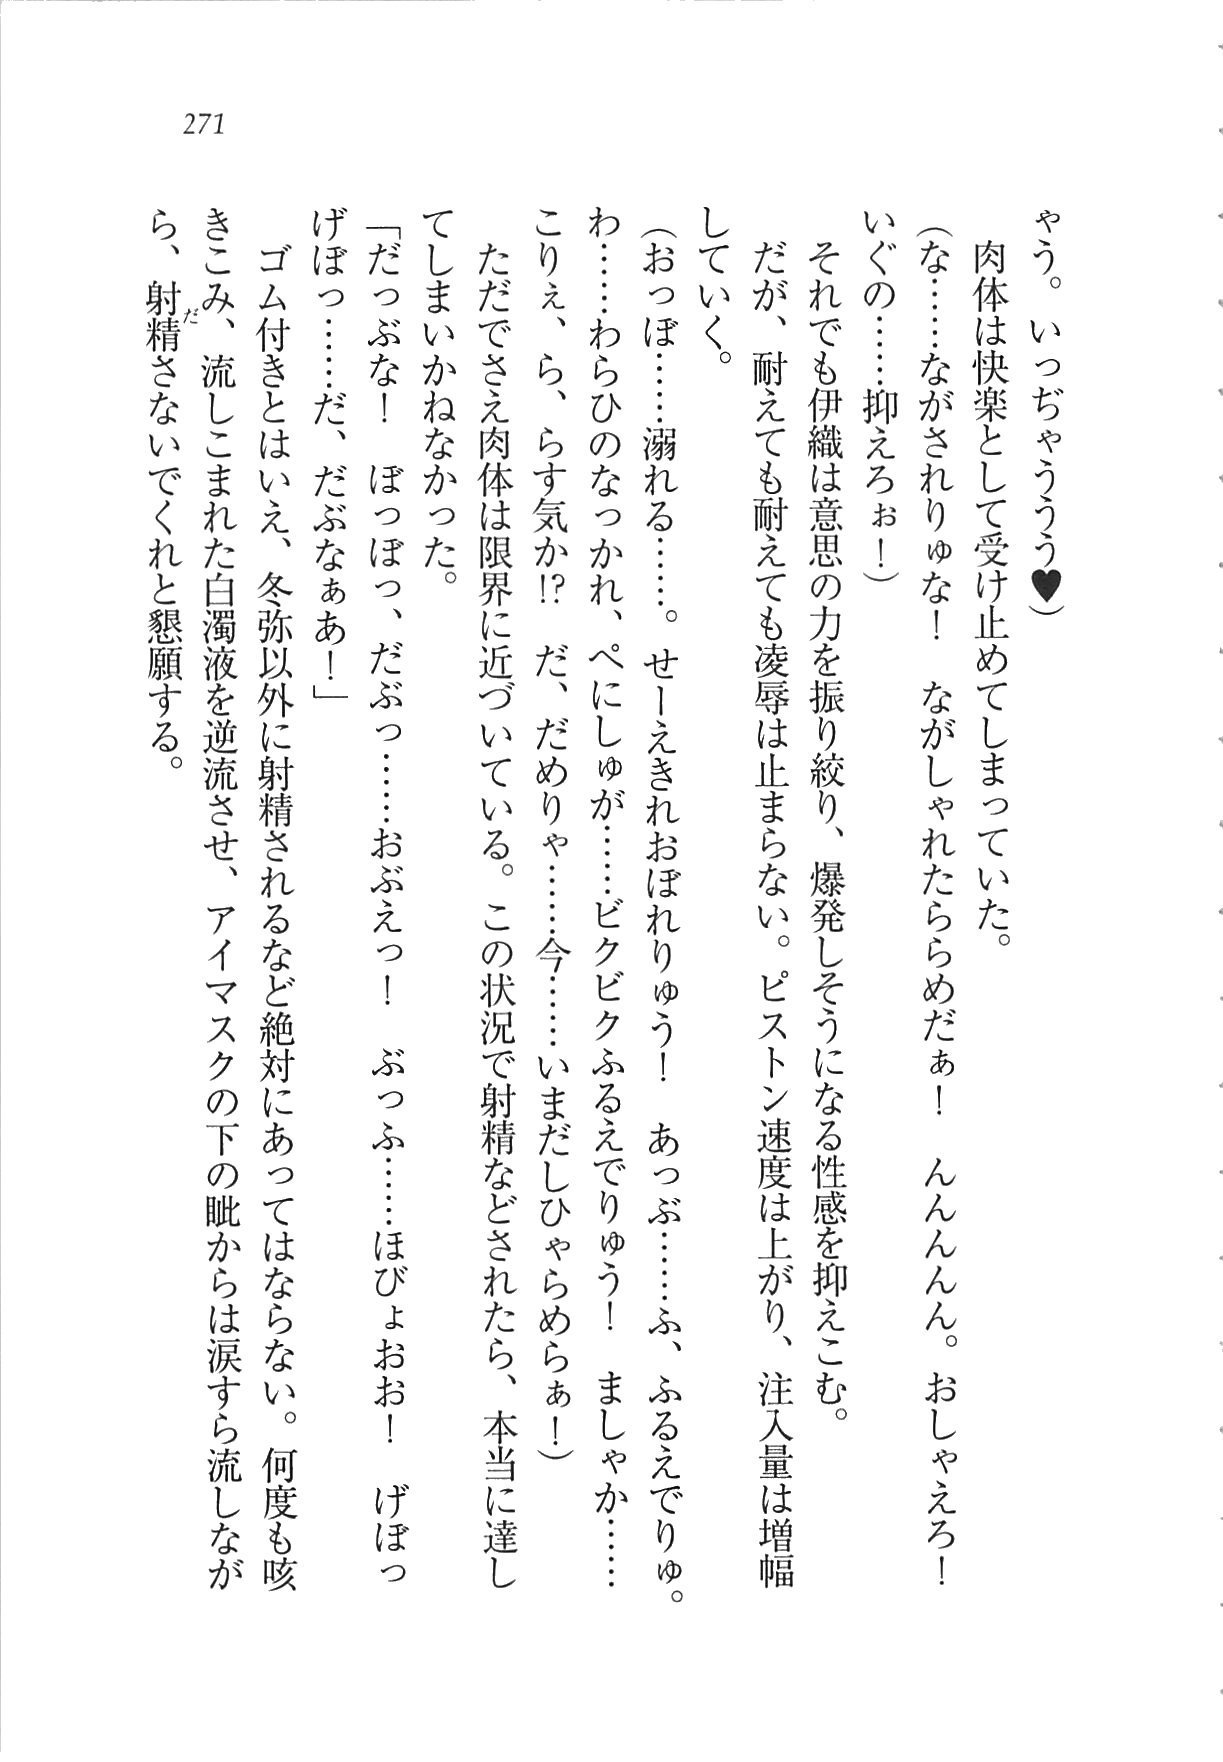 271
ゃう。いっぢゃううう♥）
　肉体は快楽として受け止めてしまっていた。
（な……ながされりゅな！　ながしゃれたららめだぁ！　んんんんん。おしゃえろ！
いぐの……抑えろぉ！）
　それでも伊織は意思の力を振り絞り、爆発しそうになる性感を抑えこむ。
　だが、耐えても耐えても凌辱は止まらない。ピストン速度は上がり、注入量は増幅
していく。
（おっぼ……溺れる……。せーえきれおぼれりゅう！　あっぶ……ふ、ふるえでりゅ。
わ……わらひのなっかれ、ぺにしゅが……ビクビクふるえでりゅう！　ましゃか……
こりぇ、ら、らす気か!?　だ、だめりゃ……今……いまだしひゃらめらぁ！）
　ただでさえ肉体は限界に近づいている。この状況で射精などされたら、本当に達し
てしまいかねなかった。
「だっぶな！　ぼっぼっ、だぶっ……おぶえっ！　ぶっふ……ほびょおお！　げぼっ
げぼっ……だ、だぶなぁあ！」
　ゴム付きとはいえ、冬弥以外に射精されるなど絶対にあってはならない。何度も咳
きこみ、流しこまれた白濁液を逆流させ、アイマスクの下の眦からは涙すら流しなが
ら、射精さないでくれと懇願する。
だ